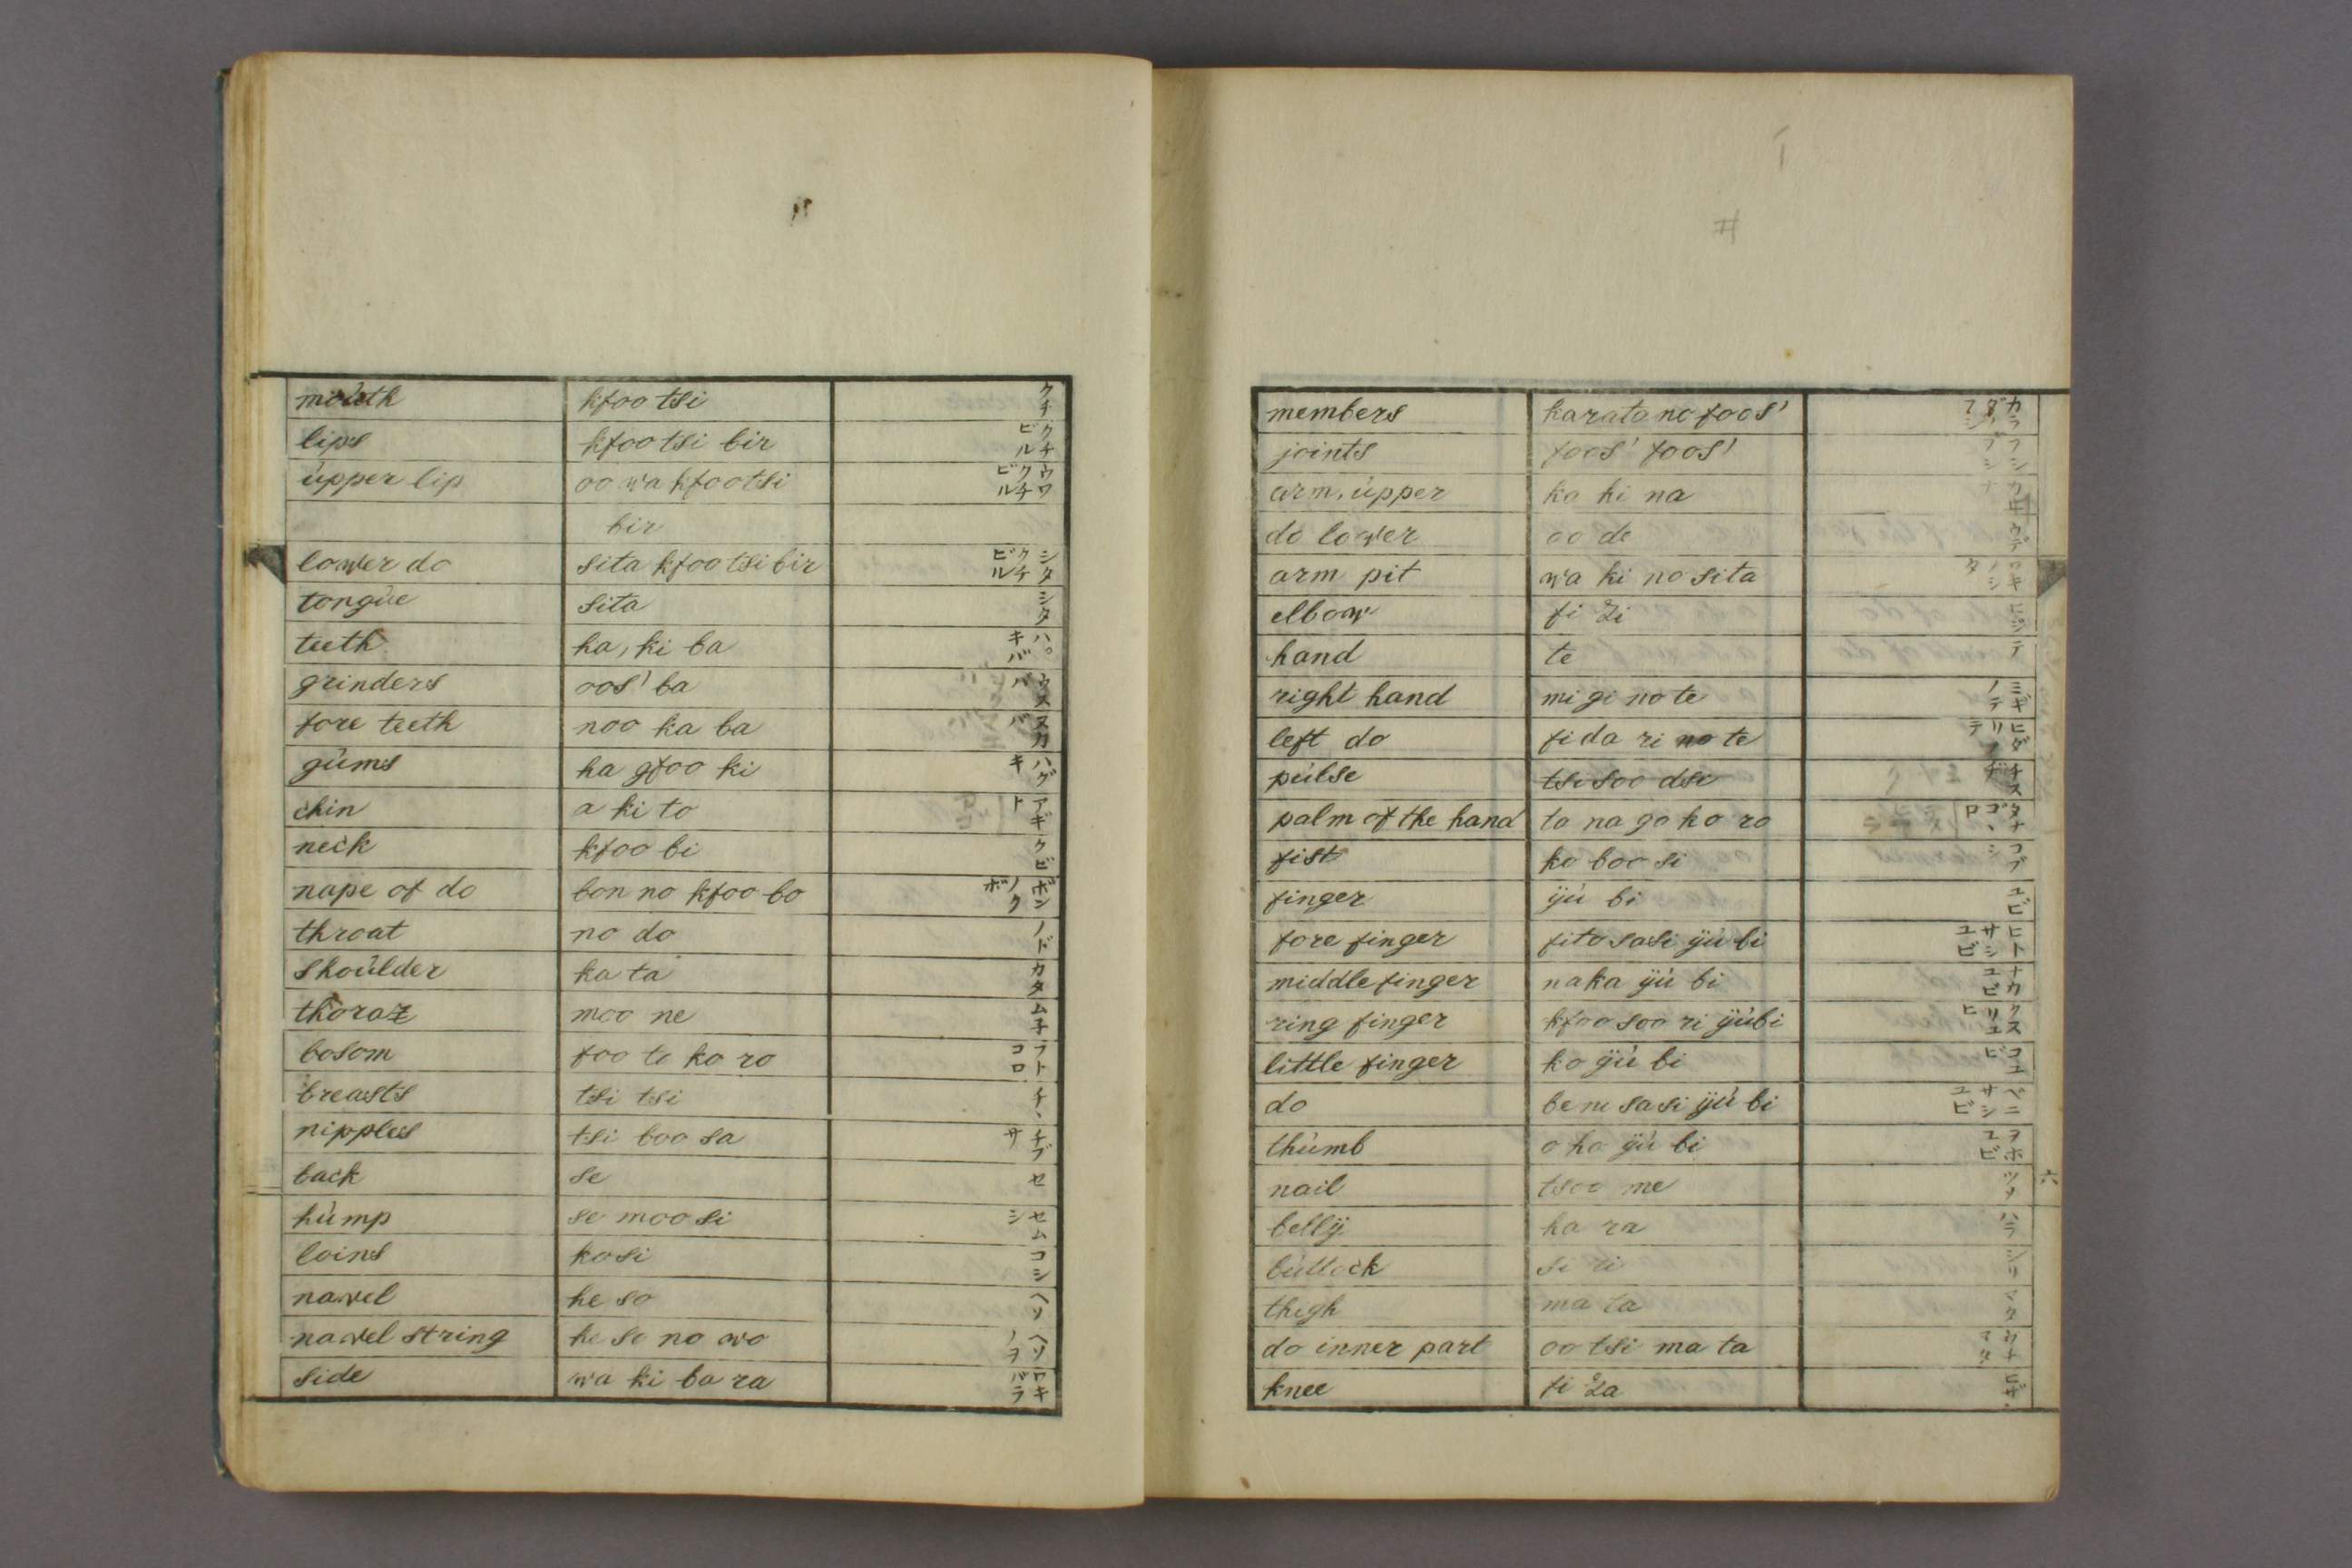 mouth kfoo tsi クチ
lips kfoo tsi bir クチビル
upper lip oo wa kfoo tsi ウワクチビル
bir
lower do sita kfoo tsi bir シタクチビル
tongue sita シタ
teeth ha, ki ba ハ。キバ
grinders oos' ba ウスバ
fore teeth noo ka ba ヌカバ
gums ha gfoo ki ハグキ
chin a ki to アギト
neck kfoo bi クビ
nape of do bon no kfoo bo ボンノクボ
throat no do ノド
shoulder ka ta カタ
thoraz moo ne ム子
bosom foo to ko ro フトコロ
breasts tsi tsi チヽ
nipples tsi boo sa チブサ
back se セ
hump se moo si セムシ
loins ko si コシ
navel he so ヘソ
navel string he so no wo ヘソノヲ
side wa ki ba ra ワキバラ
members karata no foos' カラダ
joints foos' foos' フシブシ
arm, upper ka hi na カヒナ
do lower oo de ウデ
arm pit wa ki no sita ワキノシタ
elbow fi zi ヒジ
hand te テ
right hand mi gi no te ミギノテ
left do fi da ri no te ヒダリノテ
pulse tsi soo dsi チスヂ
palm of the hand ta na go ko ro タナゴヽロ
fist ko boo si コブシ
finger ÿu bi ユビ
fore finger fito sasi ÿu bi ヒトサシユビ
middle finger naka ÿu bi ナカユビ
ring finger kfoo soo ri ÿubi クスリユヒ
little finger ko ÿu bi コユビ
do be ni sasi ÿu bi ベニサシユビ
thumb o ho ÿu bi ヲホユビ
nail tsoo me ツメ
bellÿ ha ra ハラ
buttock si ri シリ
thigh ma ta マタ
do inner part oo tsi ma ta ウチマタ
knee fi za ヒザ
六